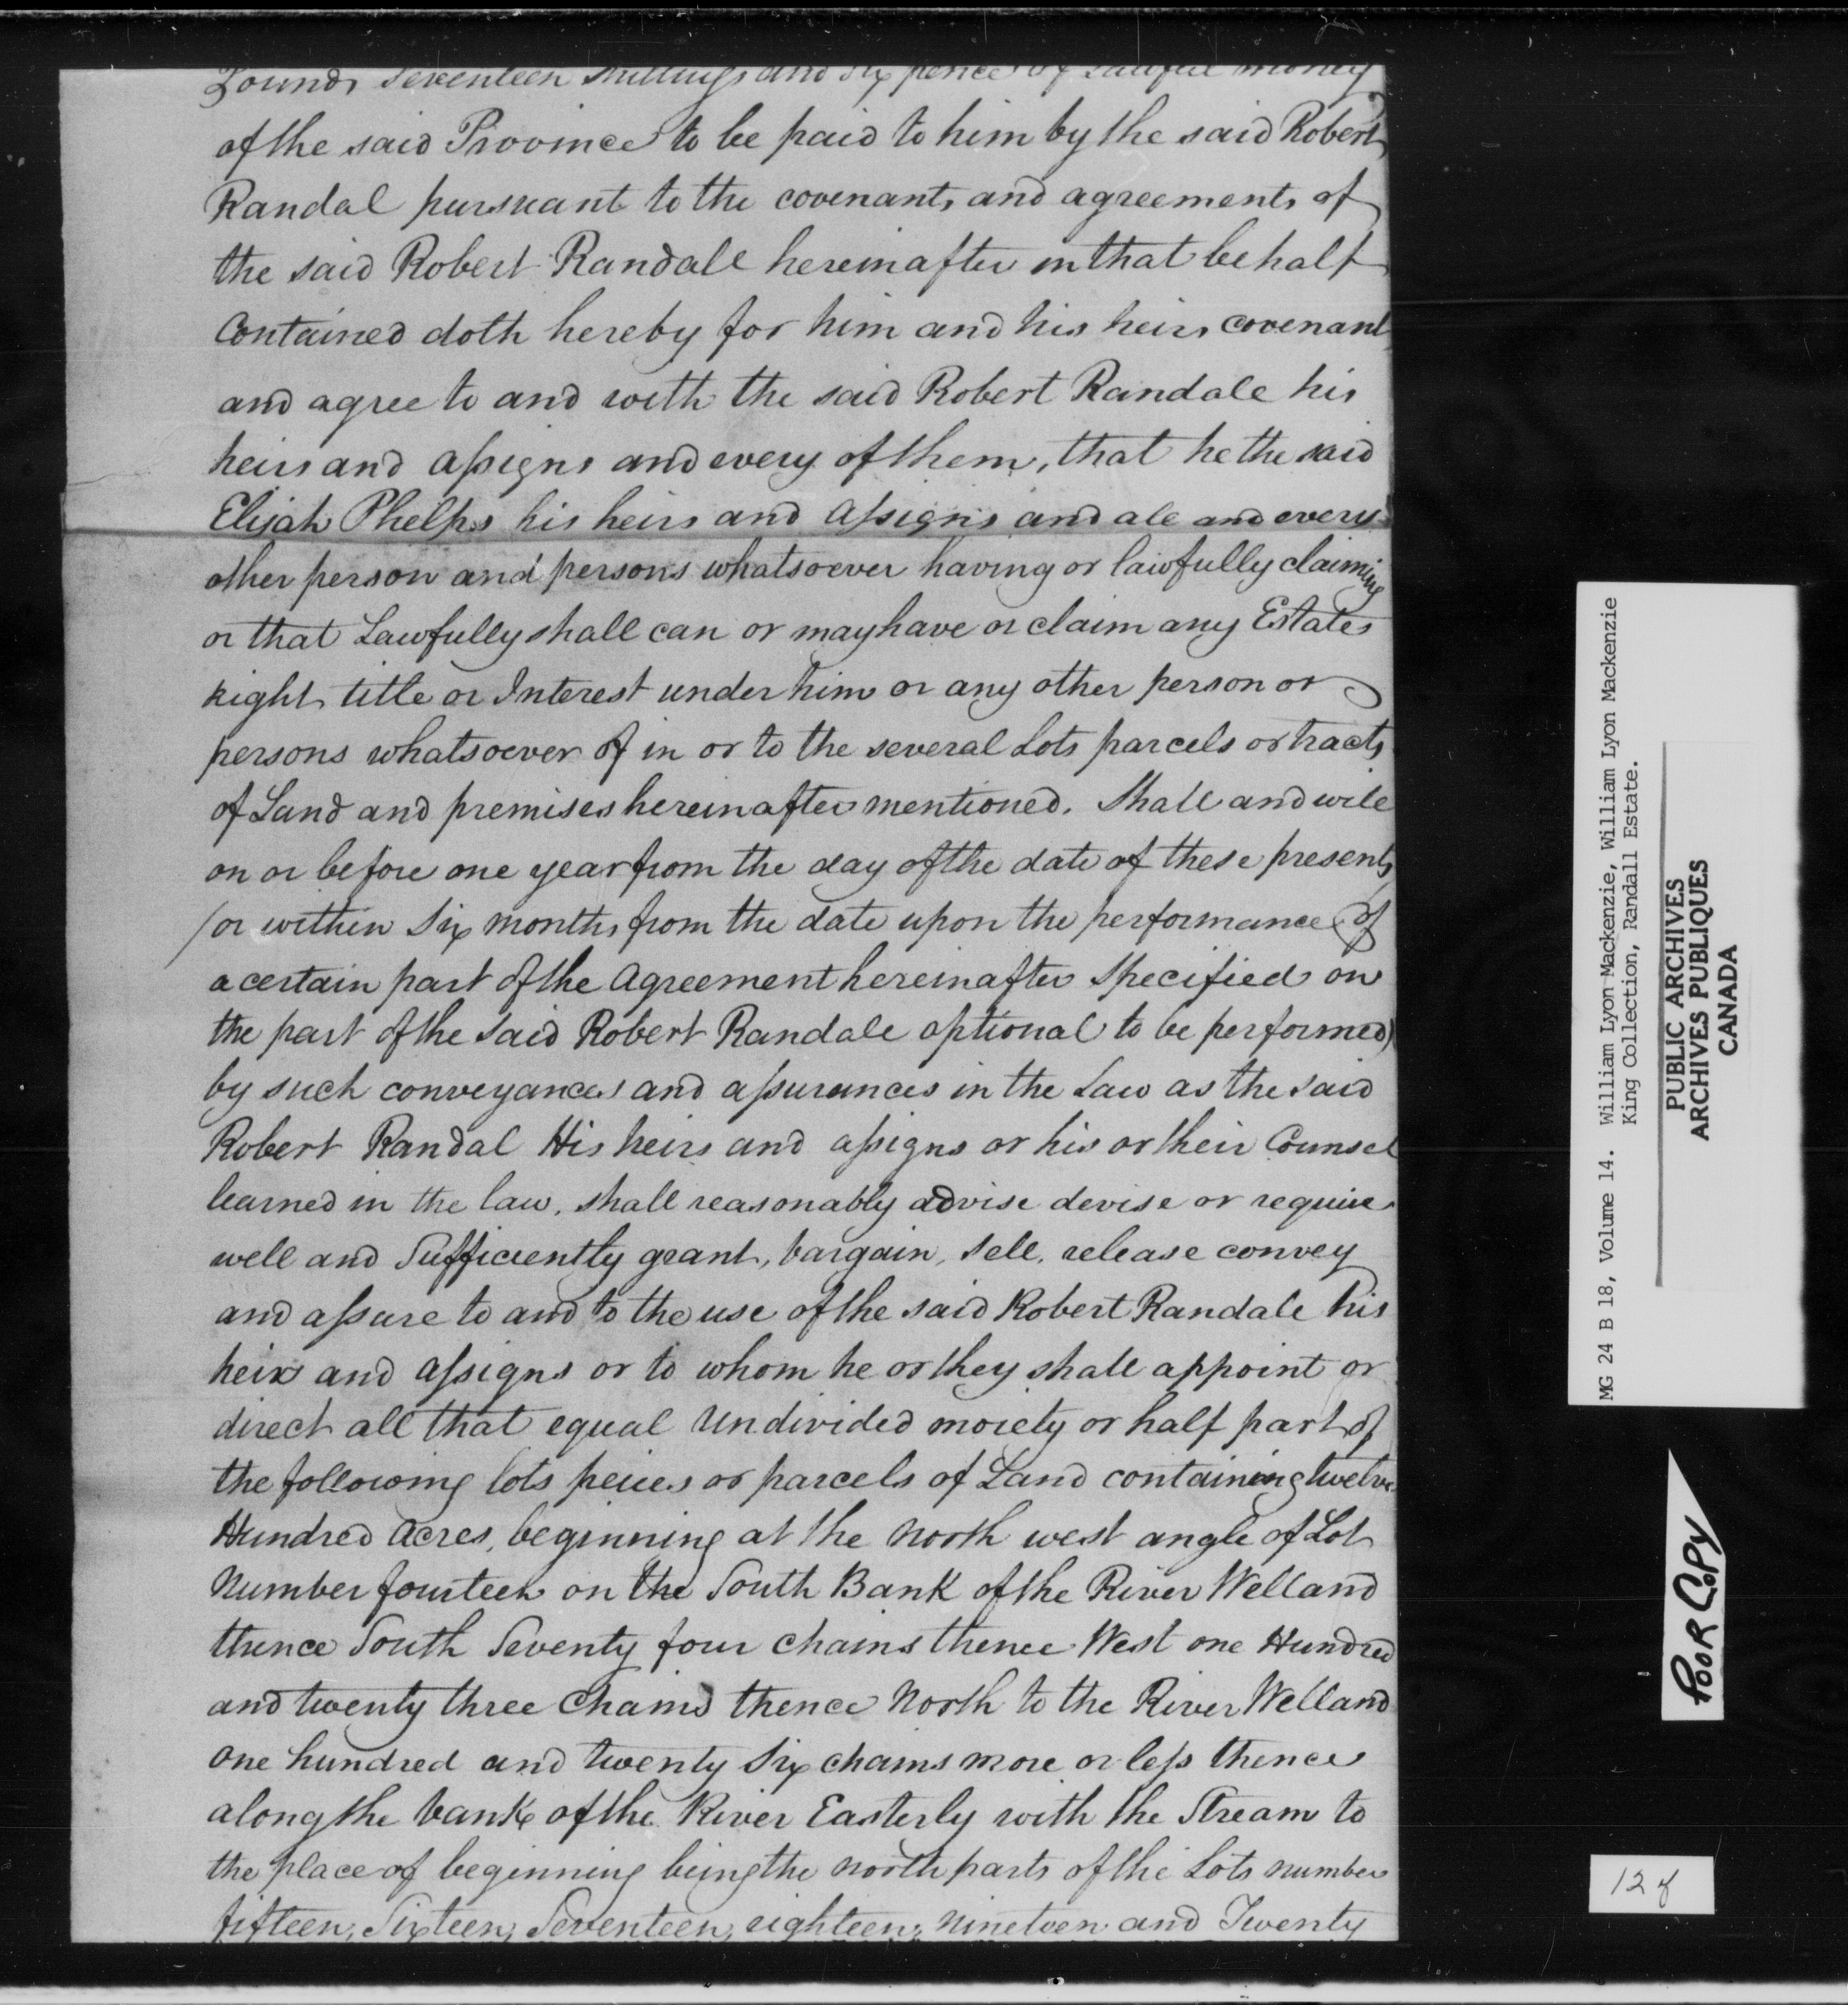 Pounds Seventeen Shillings and Six pence of Lawful money
of the said Province to be paid to him by the said Robert
Randal pursuant to the covenants and agreements of
the said Robert Randall hereinafter in that behalf
Contained doth hereby for him and his heirs covenant
and agree to and with the said Robert Randale his
heirs and assigns and every of them, that he the said
Elijah Phelps his heirs and assigns and all and every
other person and persons whatsoever having or lawfully claiming
or that Lawfully shall can or may have or claim any Estate
right title or Interest under him or any other person or
persons whatsoever of in or to the several Lots parcels or tracts
of Land and premises hereinafter mentioned. Shall and will
on or before one year from the day of the date of these presents
(or within Six months from the date upon the performance of
a certain part of the Agreement hereinafter Specified on
the part of the Said Robert Randale optional to be performed)
by such conveyances and assurances in the Law as the said
Robert Randal His heirs and assigns or his or their Counsel
learned in the law, shall reasonably advise devise or require
well and Sufficiently grant, bargain, Sell, release convey
and assure to and to the use of the said Robert Randale his
heirs and assigns or to whom he or they shall appoint or
direct all that equal undivided moiety or half part of
the following lots peices or parcels of Land containing twelve
Hundred Acres, beginning at the North west angle of Lot
Number fourteen on the South Bank of the River Welland
thence South Seventy four chains thence West one Hundred
and twenty three Chains thence North to the River Welland
one hundred and twenty Six chains more or less thence
along the bank of the River Easterly with the Stream to
the place of beginning being the north parts of the Lots number
fifteen, Sixteen, Seventeen, eighteen, nineteen and Twenty
MG 24 B 18, Volume 14. William Lyon Mackenzie, William Lyon Mackenzie
King Collection, Randall Estate.
PUBLIC ARCHIVES
ARCHIVES PUBLIQUES
CANADA
POOR COPY